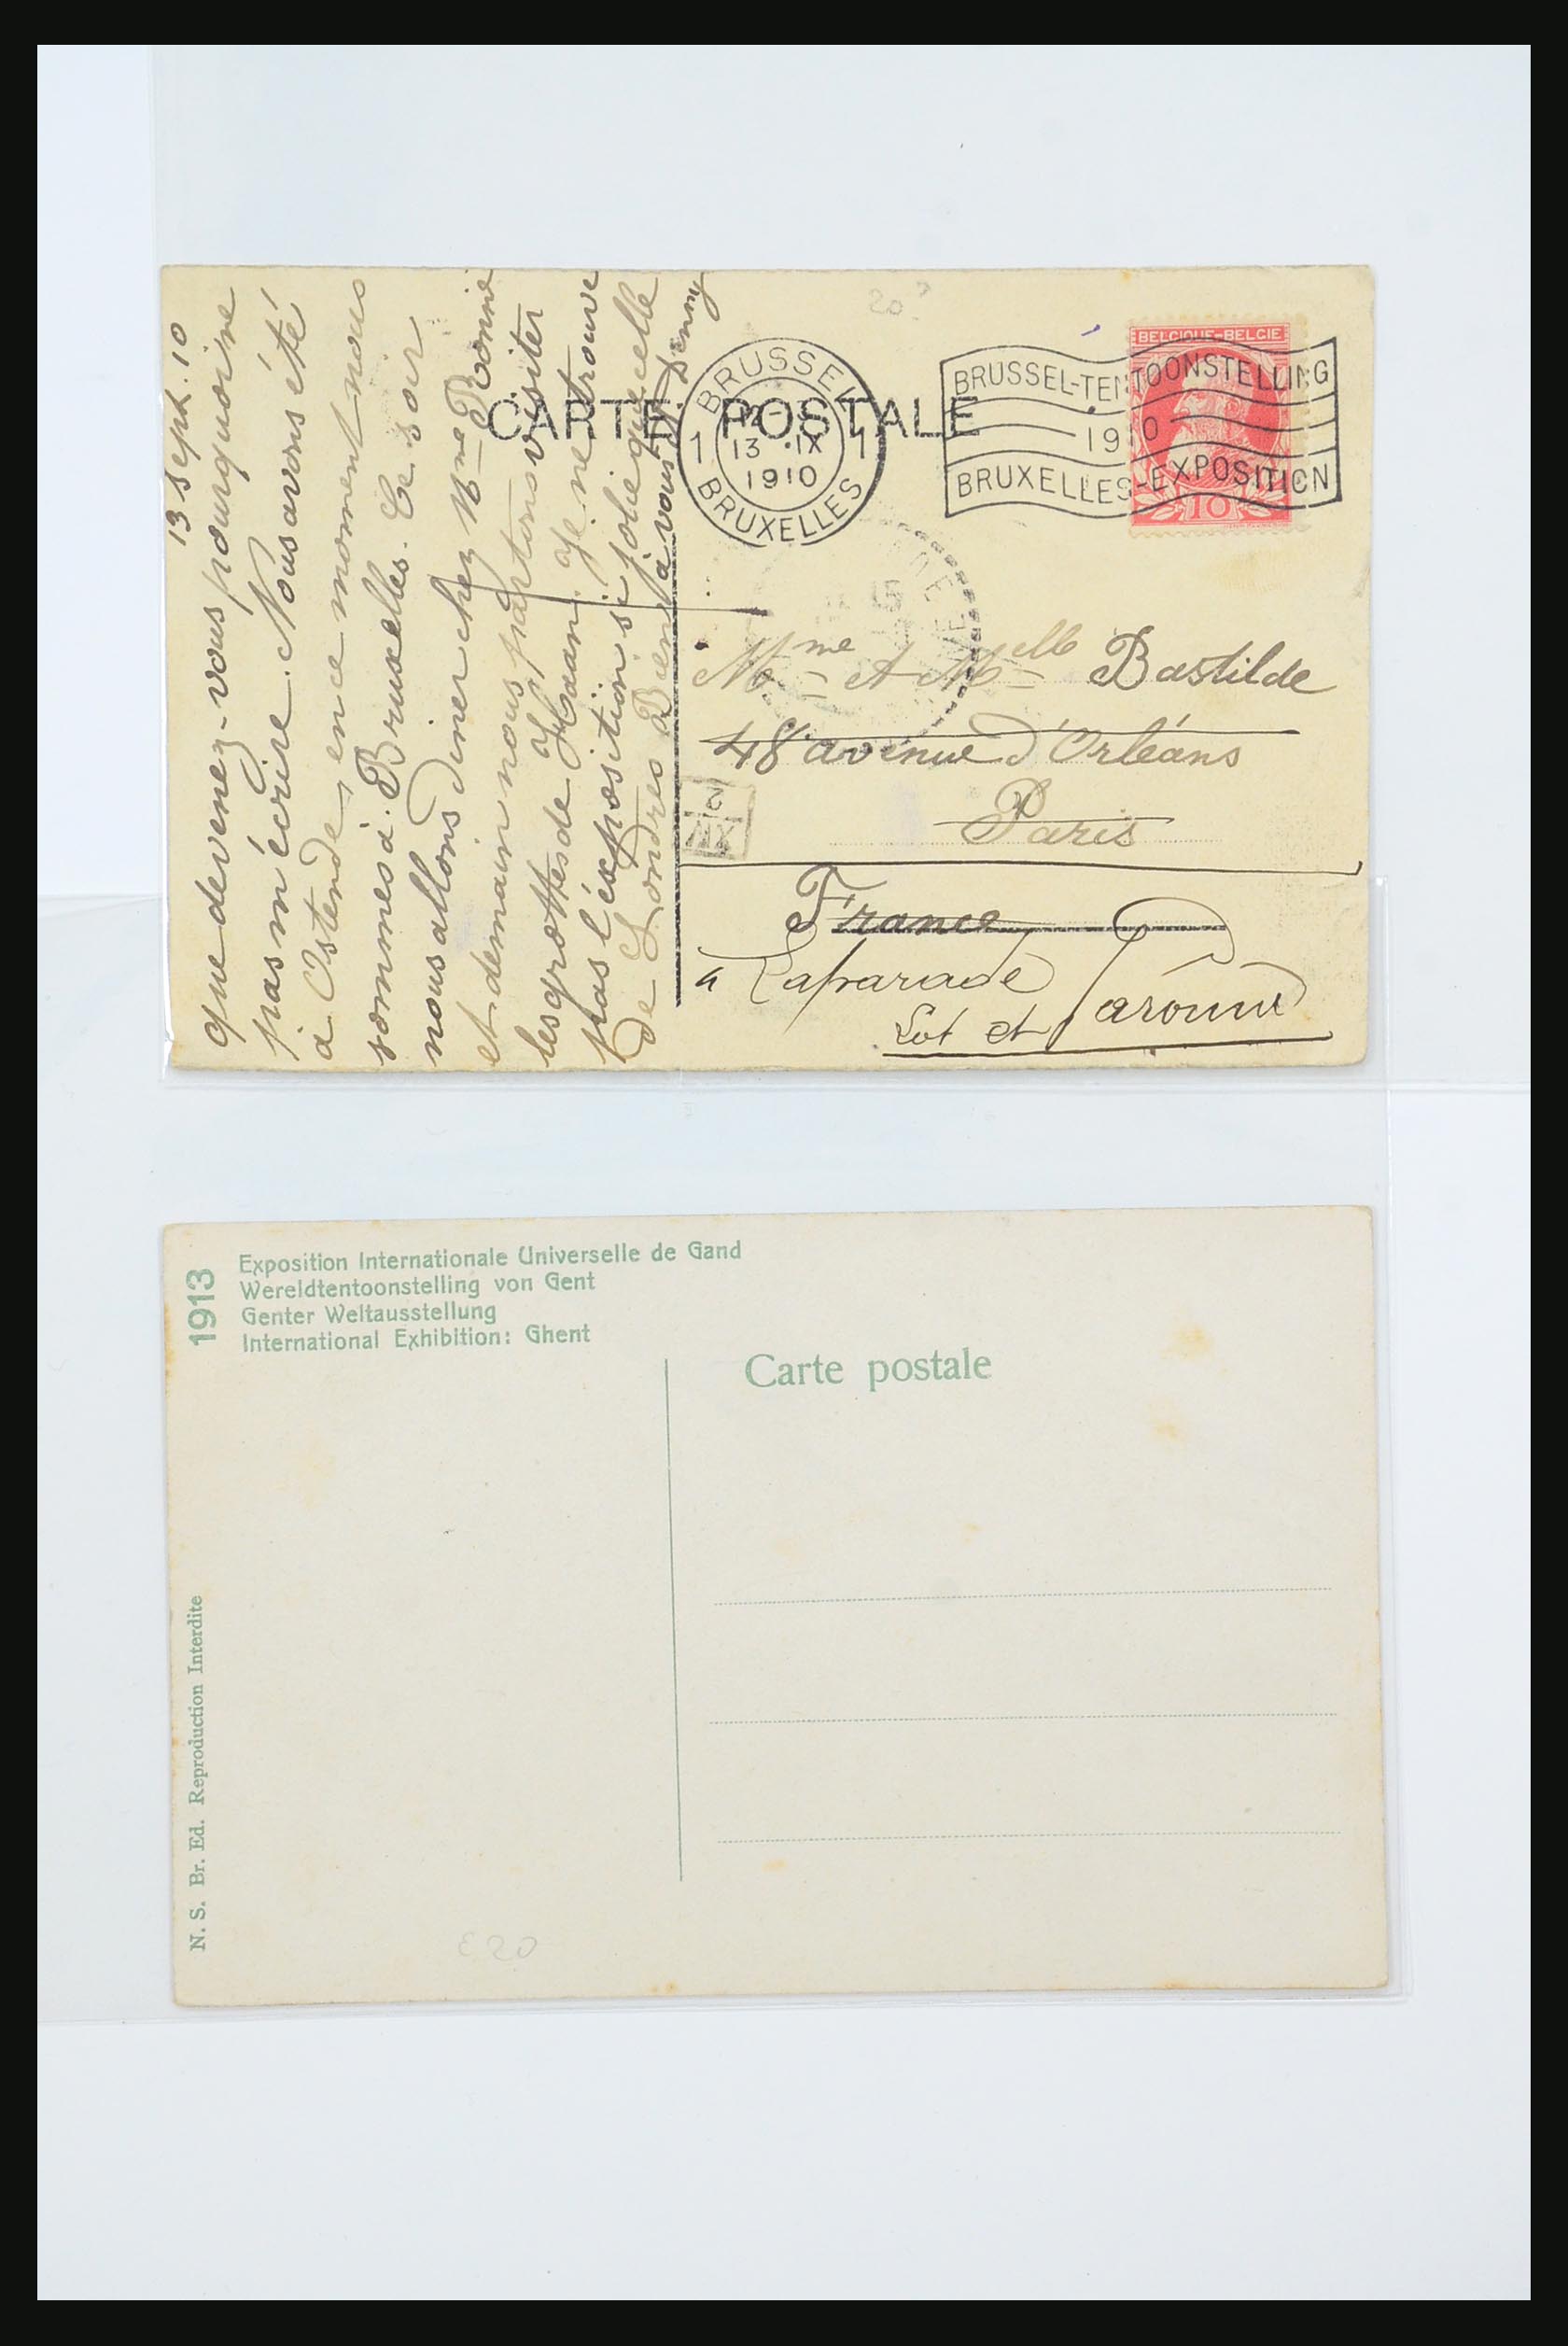 13 sept. 10
que devenez-vous pourquoi ne
pas m'écrire. Nous avons été
à Ostende, en ce moment nous
sommes à Bruxelles. Ce soir
nous allons diner chez Mme Bonnie
et demain nous partons visiter
les grottes de Haan. Je ne trouve
pas l'éxposition si jolie que celle
de Londres Bien à vous
CARTE POSTALE
BRUSSEL
1 13 IX 1
1910
BRUXELLES
BELGIQUE-BELGIE
10
BRUSSEL-TENTOONSTELLING
1910
BRUXELLES-EXPOSITION
Mme et Melle Bastilde
48 avenue d'Orléans
Paris
France
à Laparade
Lot et Garonne
1913
Exposition Internationale Universelle de Gand
Wereldtentoonstelling von Gent
Genter Weltausstellung
International Exhibition: Ghent
Carte postale
N. S. Br. Ed. Reproduction Interdite
€20